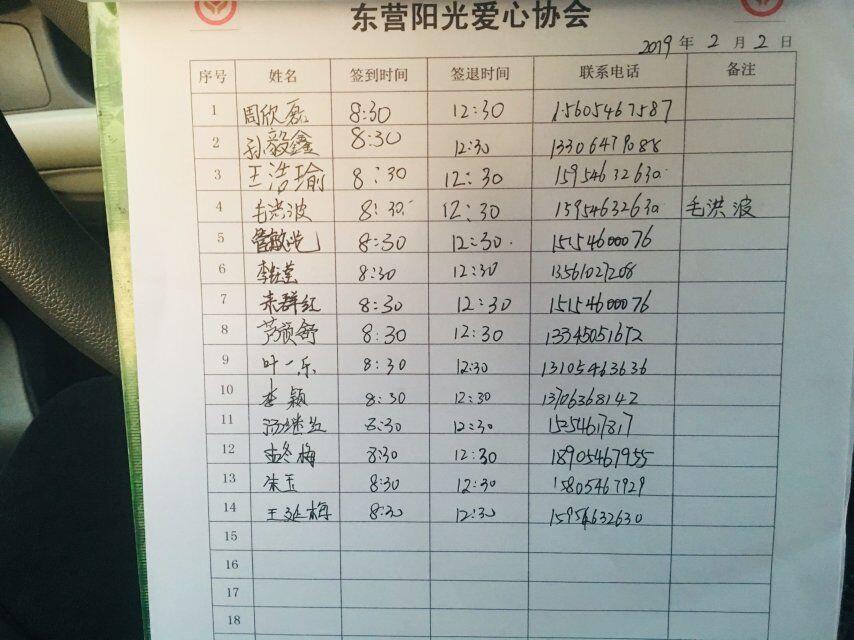 东营阳光爱心协会
2019 年 2 月 2 日
序号 姓名 签到时间 签退时间 联系电话 备注
1 周欣磊 8:30 12:30 15605467587
2 孙毅鑫 8:30 12:30 13306479088
3 王浩瑜 8:30 12:30 15954632630
4 毛洪波 8:30 12:30 15954632630 毛洪波
5 8:30 12:30 15154600076
6 8:30 12:30 13561027208
7 来群红 8:30 12:30 15154600076
8 芦颜舒 8:30 12:30 13345051672
9 叶一乐 8:30 12:30 13105463636
10 李颖 8:30 12:30 13706368142
11 8:30 12:30 15254617817
12 孟冬梅 8:30 12:30 18905467955
13 朱玉 8:30 12:30 15805467929
14 王延梅 8:30 12:30 15954632630
15
16
17
18